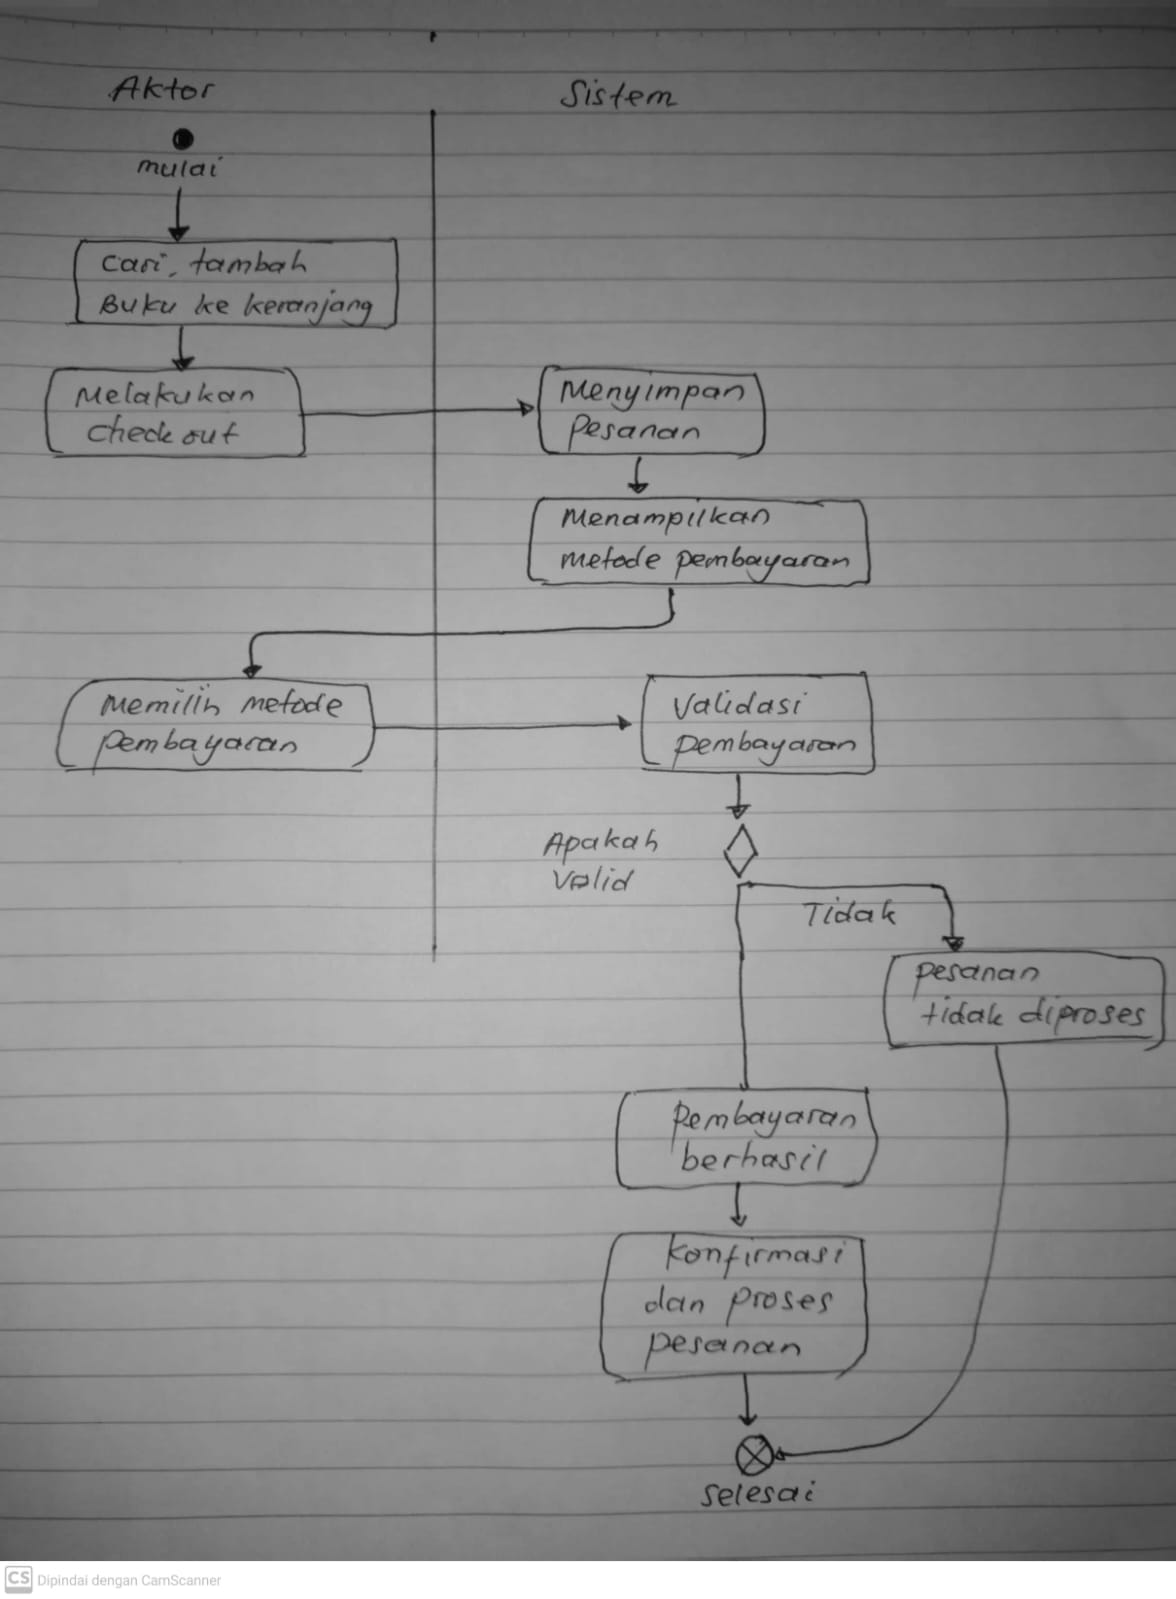 Aktor
Sistem
mulai
Cari, tambah
Buku ke keranjang
Melakukan
check out
Menyimpan
Pesanan
Menampilkan
metode pembayaran
Memilih metode
pembayaran
Validasi
pembayaran
Apakah
Valid
Tidak
Pesanan
tidak diproses
Pembayaran
berhasil
Konfirmasi
dan proses
pesanan
selesai
CS Dipindai dengan CamScanner